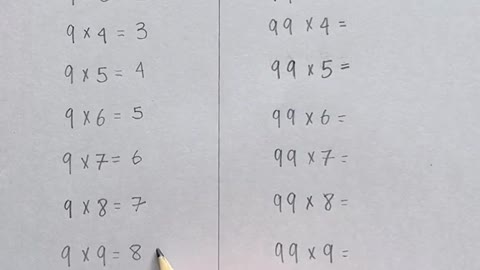 9 × 4 = 3
9 × 5 = 4
9 × 6 = 5
9 × 7 = 6
9 × 8 = 7
9 × 9 = 8
99 × 4 =
99 × 5 =
99 × 6 =
99 × 7 =
99 × 8 =
99 × 9 =